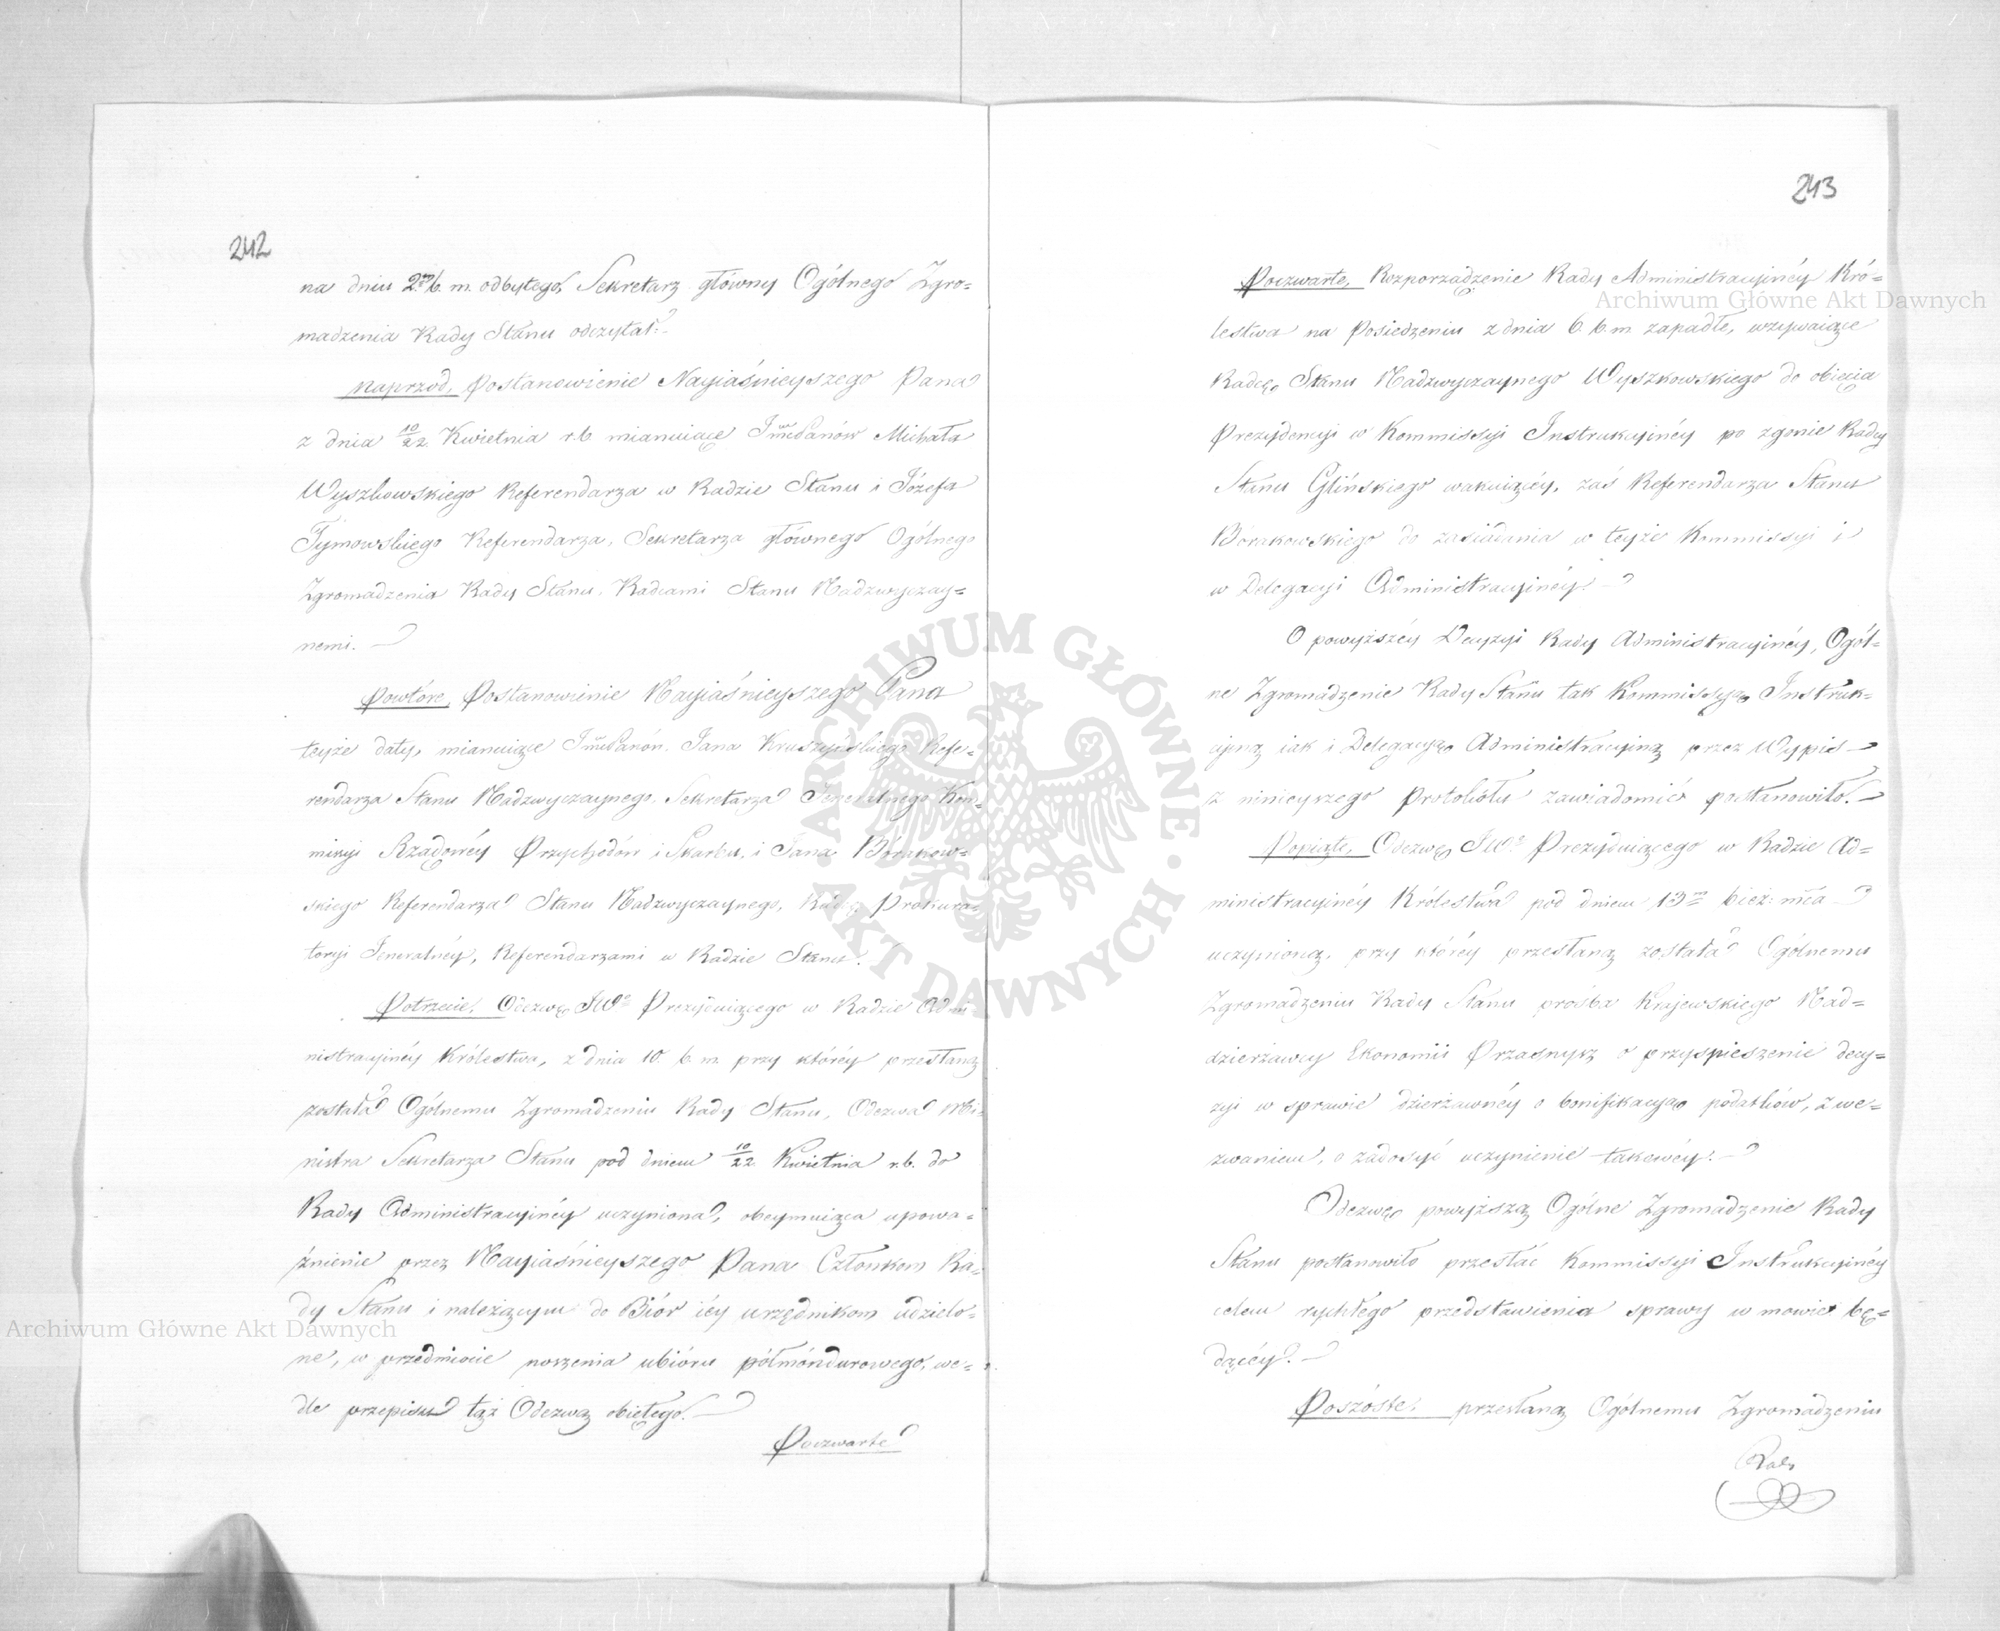 242
na dniu 2m b. m. odbytego, Sekretarz główny Ogólnego Zgro=
madzenia Rady Stanu odczytał:
Naprzod, Postanowienie Nayiaśnieyszego Pana
z dnia 10/22 Kwietnia r.b. mianuiące JmcPanów Michała
Wyszkowskiego Referendarza w Radzie Stanu i Józefa
Tymowskiego Referendarza, Sekretarza głównego Ogólnego
Zgromadzenia Rady Stanu, Radcami Stanu Nadzwyczay=
nemi.
Powtóre, Postanowienie Nayiaśnieyszego Pana
teyże daty, mianuiące JmcPanów Jana Kruszyńskiego Refe=
rendarza Stanu Nadzwyczaynego, Sekretarza Jeneralnego Kom=
missyi Rządowéy Przychodów i Skarbu, i Jana Borakow=
skiego Referendarza Stanu Nadzwyczaynego, Radcę Prokura=
toryi Jeneralnéy, Referendarzami w Radzie Stanu.
Potrzecie, Odezwę JWo Prezyduiącego w Radzie Admi=
nistracyinéy Królestwa, z dnia 10 b. m. przy któréy przesłaną
została Ogólnemu Zgromadzeniu Rady Stanu, Odezwa Mi=
nistra Sekretarza Stanu pod dniem 10/22 Kwietnia r.b. do
Rady Administracyinéy uczyniona, obeymuiąca upowa=
żnienie przez Nayiaśnieyszego Pana Członkom Ra=
dy Stanu i należącym do Biór iéy urzędnikom udzielo=
ne, w przedmiocie noszenia ubióru półmóndurowego, we=
dle przepisu tąż Odezwą obiętego.
Poczwarte
243
Poczwarte, Rozporządzenie Rady Administracyinéy Kró=
lestwa na Posiedzeniu z dnia 6 b. m. zapadłe, wzywaiące
Radcę Stanu Nadzwyczaynego Wyszkowskiego do obięcia
Prezydencyi w Kommissyi Instrukcyinéy po zgonie Radcy
Stanu Glińskiego wakuiącéy, zaś Referendarza Stanu
Borakowskiego do zasiadania w teyże Kommissyi i
w Delegacyi Administracyinéy.
O powyższéy Decyzyi Rady Administracyinéy, Ogól=
ne Zgromadzenie Rady Stanu tak Kommissyą Instruk=
cyiną iak i Delegacyą Administracyiną przez Wypis
z ninieyszego Protokółu zawiadomić postanowiło.
Popiąte, Odezwę JWo Prezyduiącego w Radzie Ad=
ministracyinéy Królestwa pod dniem 13m bież: mca
uczynioną, przy któréy przesłaną została Ogólnemu
Zgromadzeniu Rady Stanu prośba Krajewskiego Nad=
dzierżawcy Ekonomii Przasnysz o przyspieszenie decy=
zyi w sprawie dzierżawnéy o bonifikacyą podatków, z we=
zwaniem, o zadosyć uczynienie takowéy.
Odezwę powyższą Ogólne Zgromadzenie Rady
Stanu postanowiło przesłać Kommissyi Instrukcyinéy
celem rychłego przedstawienia sprawy w mowie bę=
dącéy.
Poszóste, przesłaną Ogólnemu Zgromadzeniu
Rady
Archiwum Główne Akt Dawnych
Archiwum Główne Akt Dawnych
ARCHIWUM GŁÓWNE AKT DAWNYCH